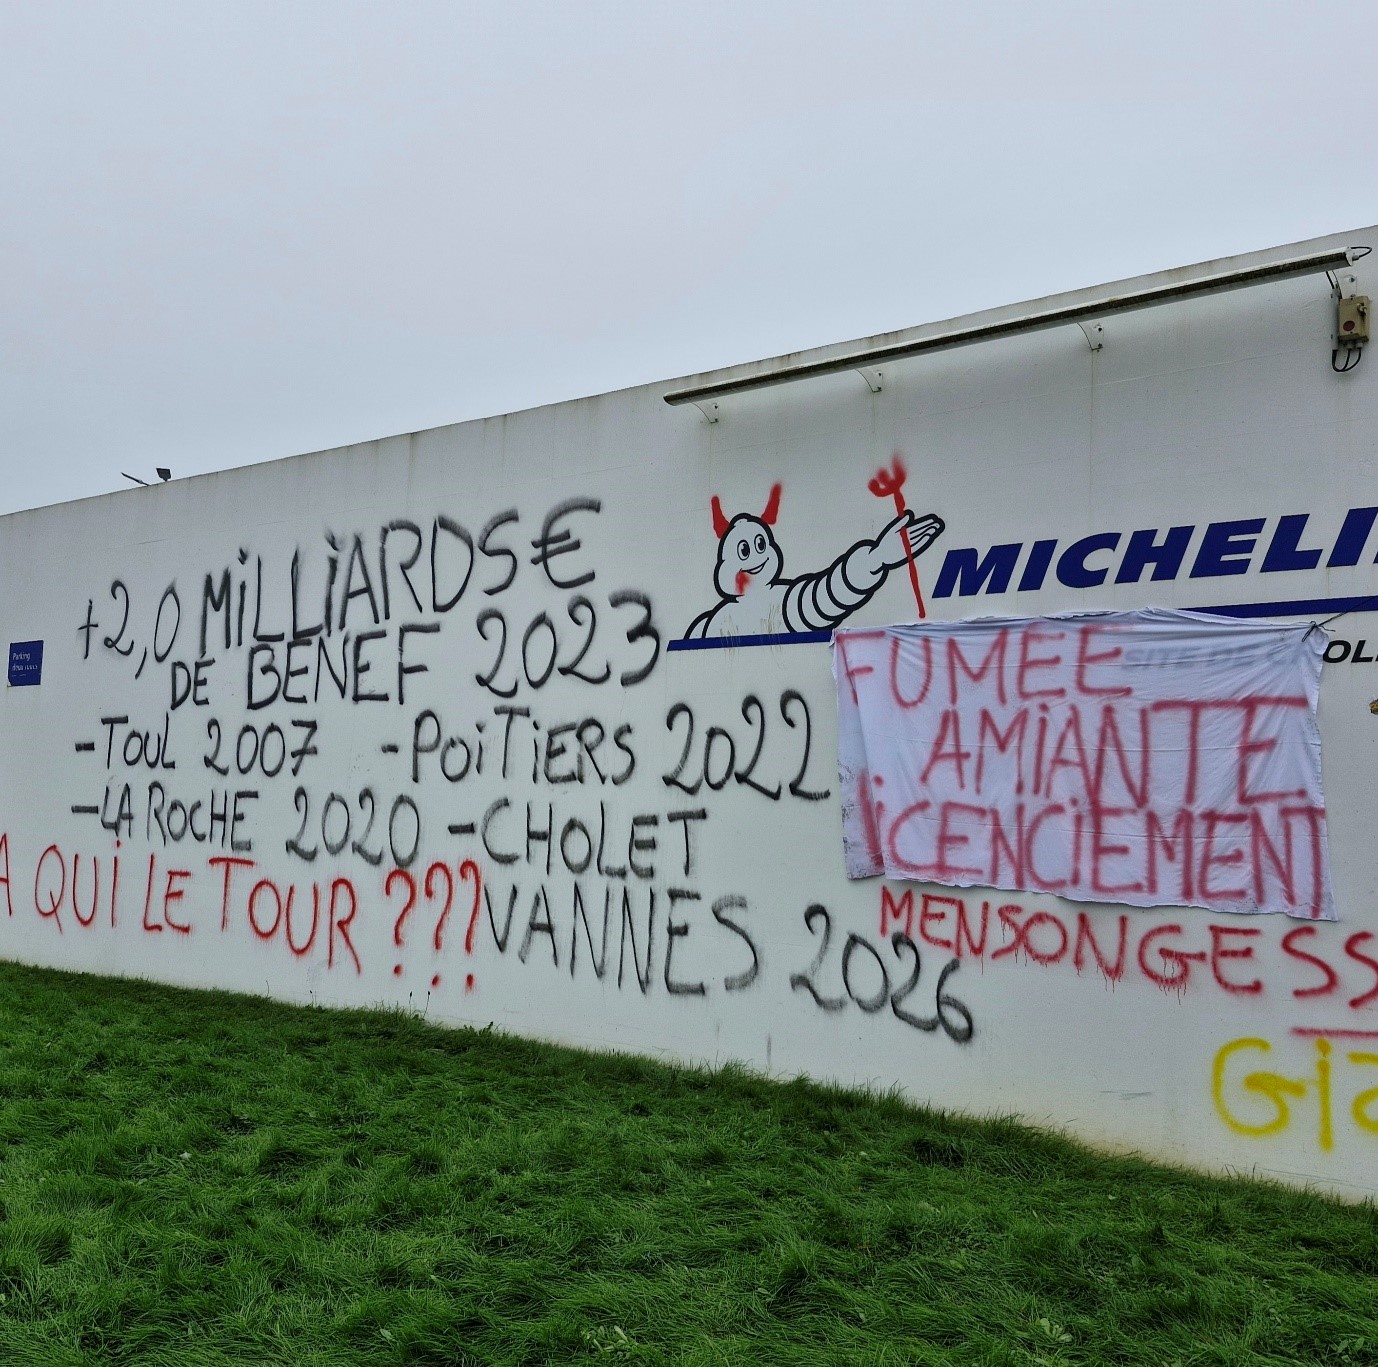 +2,0 MiLLiARDS€
DE BENEF 2023
-TOUL 2007 -POiTiERS 2022
-LA ROCHE 2020 -CHOLET
A QUi LE TOUR ??? VANNES 2026
MICHELI
FUMEE
AMiANTE
LiCENCiEMENT
MENSONGESS
Gi
Parking